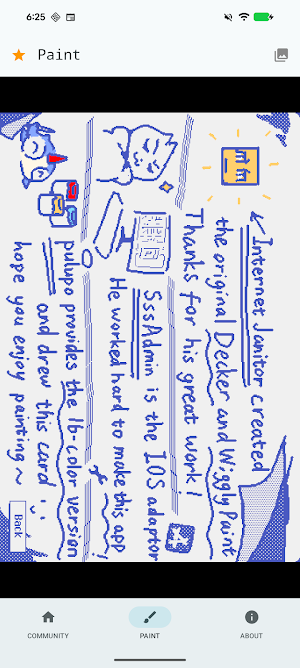 6:25
Paint
Internet Janitor created
the original Decker and WigglyPaint
Thanks for his great work!
SssAdmin is the IOS adaptor
He worked hard to make this app!
pulupo provides the 16-color version
and drew this card
hope you enjoy painting ~
Back
COMMUNITY
PAINT
ABOUT